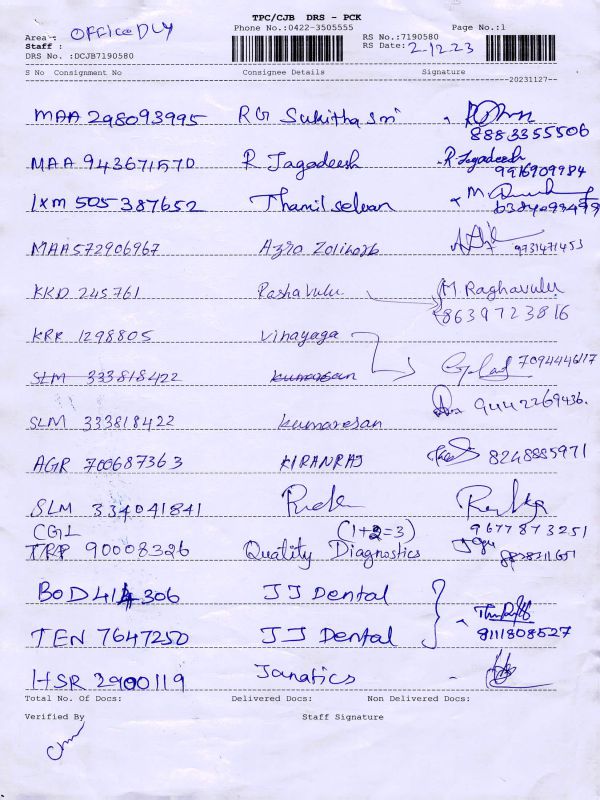 TPC/CJB DRS - PCK
Area : OFFICE DLY Phone No.:0422-3505555 RS No.:7190580 Page No.:1
Staff : RS Date: 2-12-23
DRS No. :DCJB7190580
S No Consignment No Consignee Details Signature
20231127--
MAA 298093995 RG Sukitha Sri
8883355506
MAA 943671570 R Jagadeesh R Jagadeesh
9916909984
IXM 505387652 Thamil selvan
MAA 572906967 9731471453
KKD 245761 M Raghavulu
8639723816
KRR 1298805 Vinayaga
7094446117
SLM 333818422 kumaresan
9442269436.
SLM 333818422 kumaresan
AGR 700687363 KIRANRAJ 8248885971
SLM 334041841
9677873251
CGL (1+2=3)
TRP 90008326 Quality Diagnostics
BOD 414306 JJ Dental
TEN 7647250 JJ Dental 8111808527
HSR 2900119 Janatics
Total No. Of Docs: Delivered Docs: Non Delivered Docs:
Verified By Staff Signature